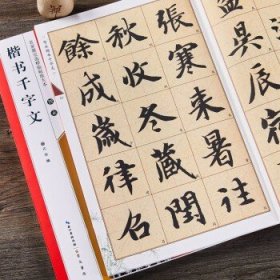 盈昃
張寒來暑往
秋收冬藏閏
餘成歲律呂
楷书千字文